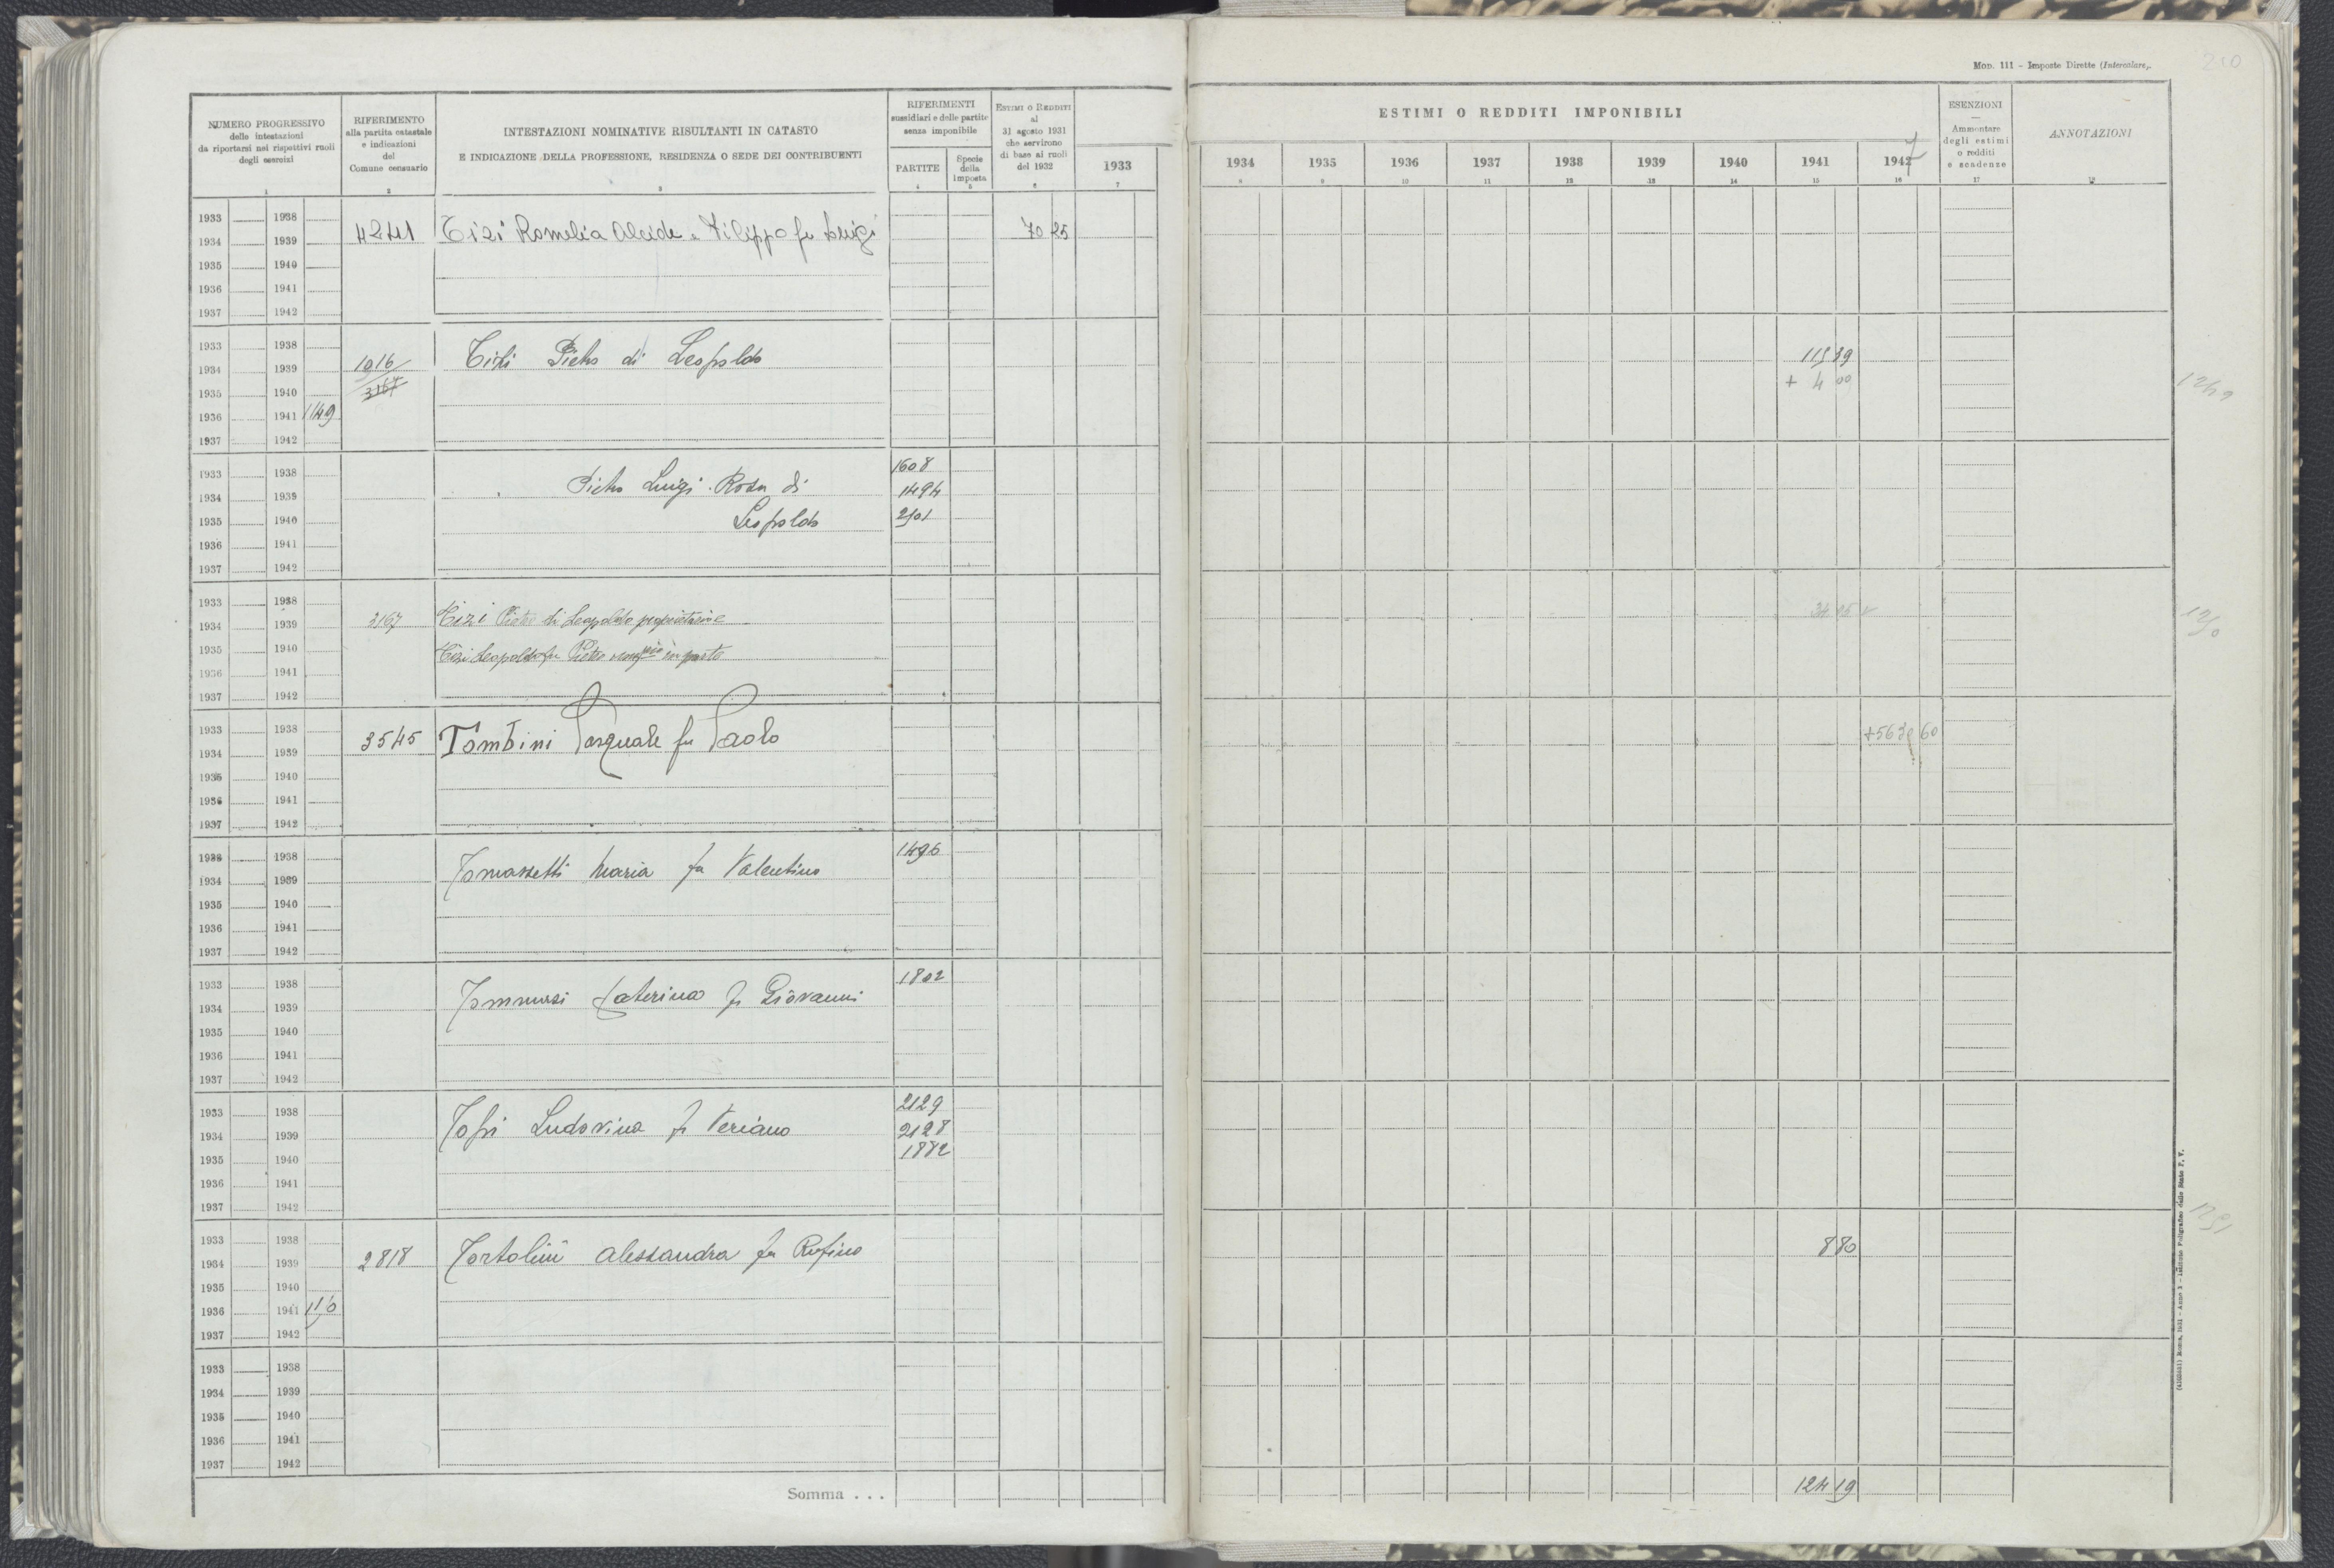 Mod. 111 - Imposte Dirette (Intercalare).
210
NUMERO PROGRESSIVO
delle intestazioni
da riportarsi nei rispettivi ruoli
degli esercizi
RIFERIMENTO
alla partita catastale
e indicazioni
del
Comune censuario
INTESTAZIONI NOMINATIVE RISULTANTI IN CATASTO
E INDICAZIONE DELLA PROFESSIONE, RESIDENZA O SEDE DEI CONTRIBUENTI
RIFERIMENTI
sussidiari e delle partite
senza imponibile
PARTITE
Specie
della
imposta
ESTIMI O REDDITI
al
31 agosto 1931
che servirono
di base ai ruoli
del 1932
ESTIMI O REDDITI IMPONIBILI
1933 1934 1935 1936 1937 1938 1939 1940 1941 1942 7
ESENZIONI
—
Ammontare
degli estimi
o redditi
e scadenze
ANNOTAZIONI
1 2 3 4 5 6 7 8 9 10 11 12 13 14 15 16 17 18
1933 1938
1934 1939 4241 Tizi Romelia Alcide e Filippo fu Luigi 70 25
1935 1940
1936 1941
1937 1942
1933 1938
1934 1939 1016 Tizi Pietro di Leopoldo 115 39
1935 1940 3167 + 4 00
1936 1941 1149
1937 1942
1933 1938 1608
1934 1939 Pietro Luigi Rosa di 1494
1935 1940 Leopoldo 2501
1936 1941
1937 1942
1933 1938
1934 1939 3167 Tizi Pietro di Leopoldo proprietario 34 15
1935 1940 Tizi Leopoldo fu Pietro in parte
1936 1941
1937 1942
1933 1938
1934 1939 3545 Tombini Pasquale fu Paolo +563 60
1935 1940
1936 1941
1937 1942
1933 1938 1496
1934 1939 Tomassetti Maria fu Valentino
1935 1940
1936 1941
1937 1942
1933 1938 1802
1934 1939 Tommasi Caterina fu Giovanni
1935 1940
1936 1941
1937 1942
1933 1938 2129
1934 1939 Topi Ludovina fu Veriano 2128
1935 1940 1882
1936 1941
1937 1942
1933 1938
1934 1939 2818 Tortolini Alessandra fu Rufino 8 80
1935 1940
1936 1941
1937 1942
1933 1938
1934 1939
1935 1940
1936 1941
1937 1942
Somma . . . 124 19